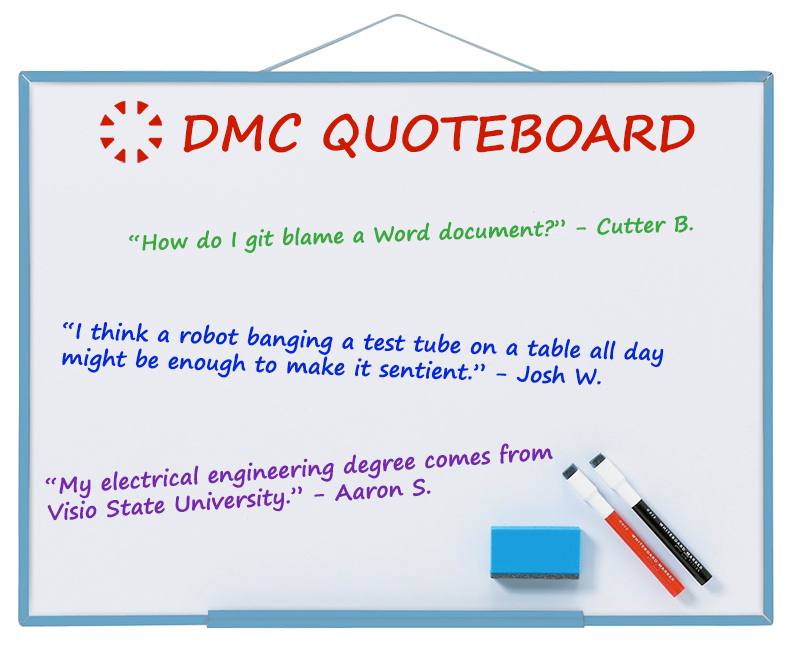 DMC QUOTEBOARD
“How do I git blame a Word document?” - Cutter B.
“I think a robot banging a test tube on a table all day
might be enough to make it sentient.” - Josh W.
“My electrical engineering degree comes from
Visio State University.” - Aaron S.
WHITEBOARD MARKER
WHITEBOARD MARKER